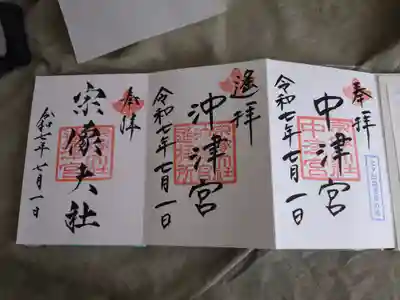 奉拝
中津宮
令和七年七月一日
遙拝
沖津宮
令和七年七月一日
奉拝
宗像大社
令和七年七月一日